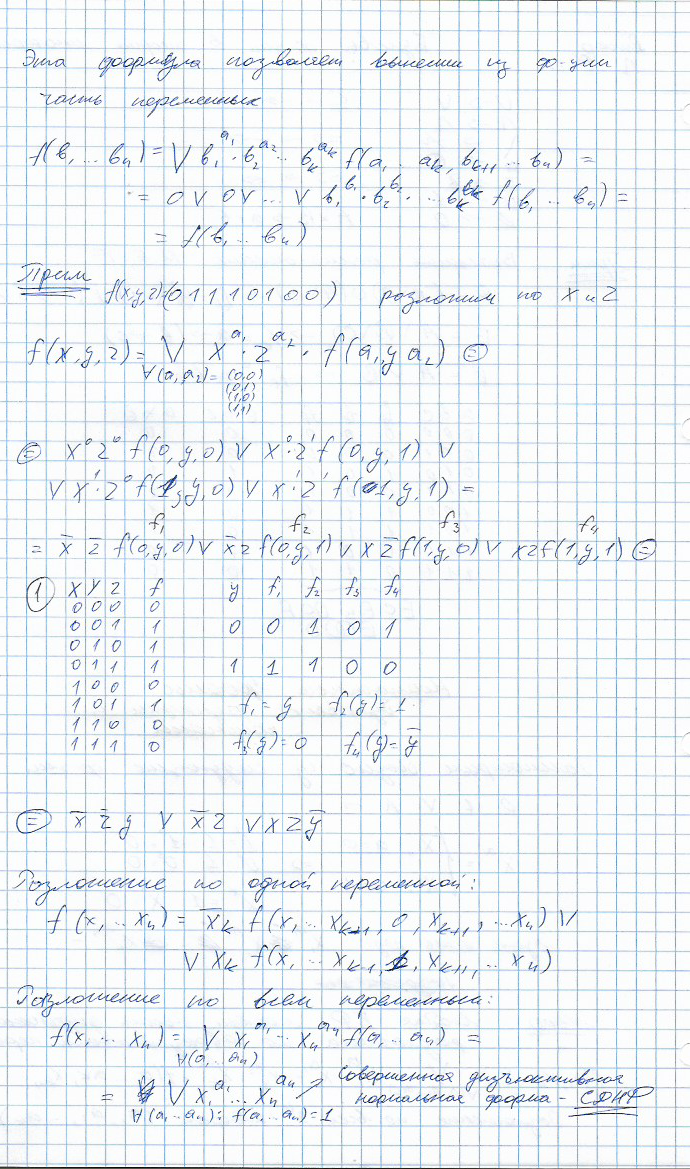 Эта формула позволяет вынести из ф-ции
часть переменных
f(b₁ ... bₙ) = ⋁ b₁^a₁ · b₂^a₂ ... bₖ^aₖ f(a₁ ... aₖ, bₖ₊₁ ... bₙ) =
= 0 ∨ 0 ∨ ... ∨ b₁^b₁ · b₂^b₂ · ... bₖ^bₖ f(b₁ ... bₙ) =
= f(b₁ ... bₙ)
Прим f(x,y,z)=(0 1 1 1 0 1 0 0) разложим по x и z
f(x,y,z) = ⋁ x^a₁ · z^a₂ · f(a₁, y a₂) ⊜
∀(a₁ a₂) = (0,0)
(0,1)
(1,0)
(1,1)
⊜ x⁰ z⁰ f(0,y,0) ∨ x⁰·z¹ f(0,y,1) ∨
∨ x¹·z⁰ f(1,y,0) ∨ x¹·z¹ f(1,y,1) =
f₁ f₂ f₃ f₄
= x̄ z̄ f(0,y,0) ∨ x̄ z f(0,y,1) ∨ x z̄ f(1,y,0) ∨ x z f(1,y,1) ⊜
① x y z f y f₁ f₂ f₃ f₄
0 0 0 0
0 0 1 1 0 0 1 0 1
0 1 0 1
0 1 1 1 1 1 1 0 0
1 0 0 0
1 0 1 1 f₁ = y f₂(y) = 1
1 1 0 0
1 1 1 0 f₃(y) = 0 f₄(y) = ȳ
⊜ x̄ z̄ y ∨ x̄ z ∨ x z ȳ
Разложение по одной переменной:
f(x₁ ... xₙ) = x̄ₖ f(x₁ ... xₖ₋₁, 0, xₖ₊₁, ... xₙ) ∨
∨ xₖ f(x₁ ... xₖ₋₁, 1, xₖ₊₁, ... xₙ)
Разложение по всем переменным:
f(x₁ ... xₙ) = ⋁ x₁^a₁ ... xₙ^aₙ f(a₁ ... aₙ) =
∀(a₁ ... aₙ)
= ⋁ x₁^a₁ ... xₙ^aₙ ↗ совершенная дизъюнктивная
нормальная форма - СДНФ
∀(a₁ ... aₙ): f(a₁ ... aₙ) = 1